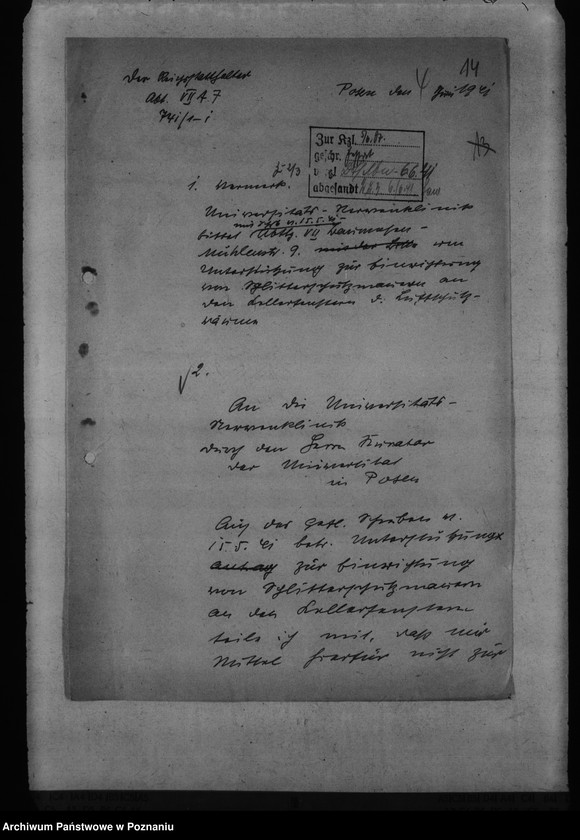 14
Der Reichsstatthalter
Abt. VII A 7
Posen den 4 Juni 1941
Zur Kzl.
geschr.
abgesandt
1. Vermerk.
Universitäts-Nervenklinik
mit Schr. v. 15.5.41
bittet Abtlg. VII
Mühlenstr. 9. um
Unterstützung zur Einrichtung
von Splitterschutzmauern an
den Kellerfenstern d. Luftschutz-
räume
2.
An die Universitäts-
Nervenklinik
durch den Herrn Kurator
der Universität
in Posen
Auf das gefl. Schreiben v.
15.5.41 betr. Unterstützung
antrag zur Einrichtung
von Splitterschutzmauern
an den Kellerfenstern
teile ich mit, daß mir
Mittel hierfür nicht zur
Archiwum Państwowe w Poznaniu